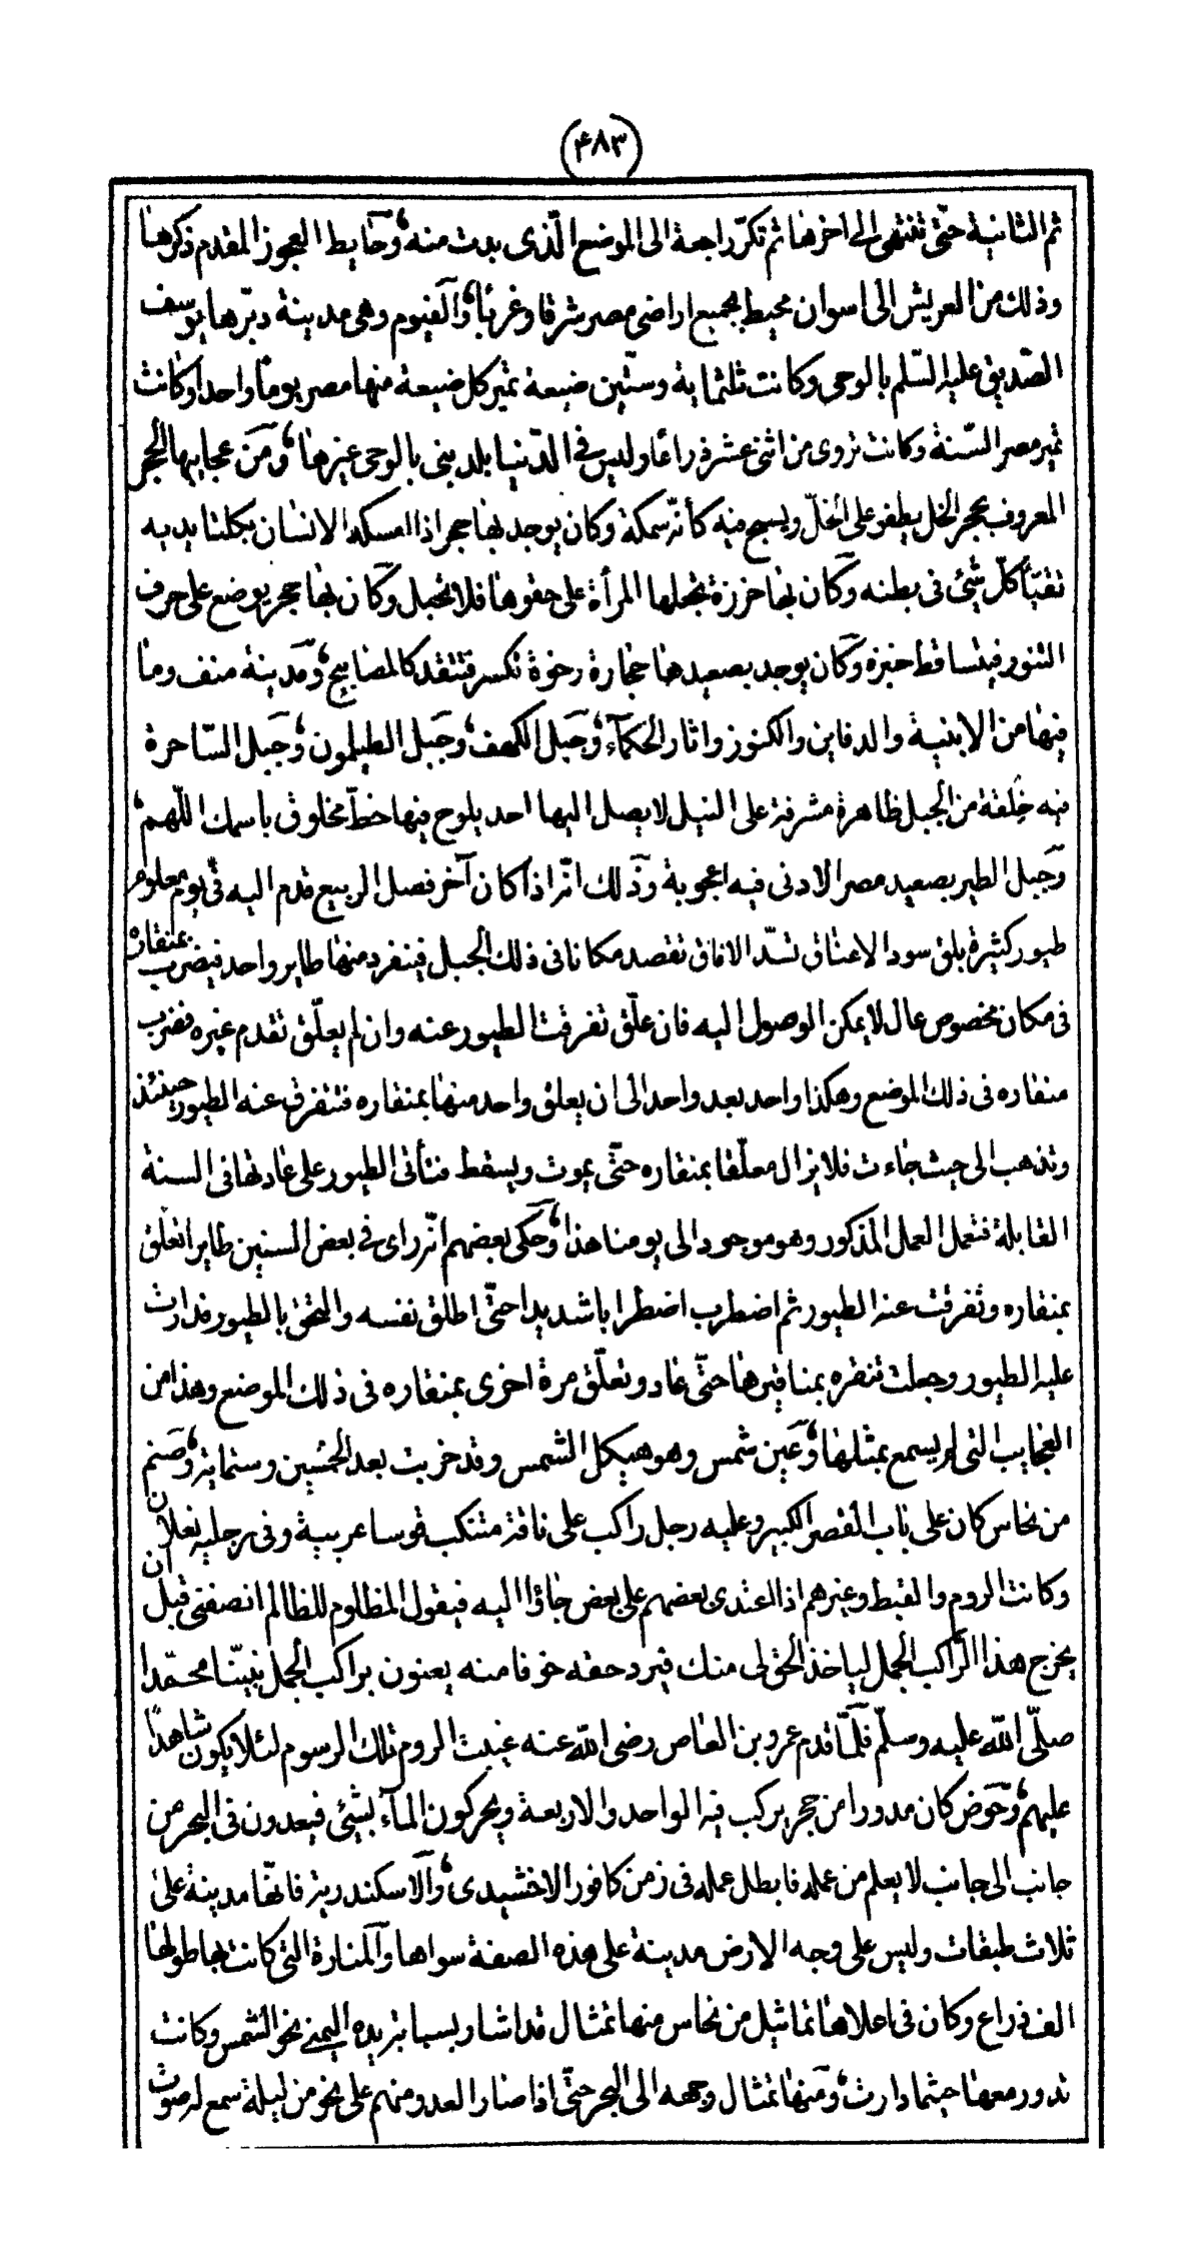 (۴۸۳)
ثم الثانية حتّى تنتهى الى اخرها ثم تكرّ راجعة الى الموضع الّذى بدت منه وحايط العجوز المقدم ذكرها
وذلك من العريش الى اسوان محيط بجميع اراضى مصر شرقا وغربا والفيوم وهى مدينة دبّرها يوسف
الصّديق عليه السّلم بالوحى وكانت ثلثماية وستّين ضيعة تمير كل ضيعة منها مصر يوما واحدا وكانت
تمير مصر السّنة وكانت تروى من اثنى عشر ذراعا وليس فى الدّنيا بلد بنى بالوحى غيرها ومن عجايبها الحجر
المعروف بحجر الخل يطفو على الخلّ ويسبح فيه كأنّه سمكة وكان يوجد بها حجر اذا امسكه الانسان بكلتا يديه
تقيّأ كلّ شئ فى بطنه وكان بها خرزة تجعلها المرأة على حقوها فلا تحبل وكان بها حجر يوضع على حرف
التنور فيتساقط خبزه وكان يوجد بصعيدها حجارة رخوة تكسر فتتقد كالمصابيح ومدينة منف وما
فيها من الابنية والدفاين والكنوز واثار الحكمآء وجبل الكهف وجبل الطيلمون وجبل السّاحرة
فيه خِلقة من الجبل ظاهرة مشرفة على النيل لا يصل اليها احد يلوح فيها خطّ مخلوق باسمك اللّهم
وجبل الطير بصعيد مصر الادنى فيه اعجوبة وذلك انّه اذا كان آخر فصل الربيع قدم اليه فى يوم معلوم
طيور كثيرة بلق سود الاعناق تسّد الافاق تقصد مكانا فى ذلك الجبل فينفرد منها طاير واحد فيضرب بمنقاره
فى مكان مخصوص عال لا يمكن الوصول اليه فان علّق تفرقت الطيور عنه وان لم يعلّق تقدم غيره فضرب
منقاره فى ذلك الموضع وهكذا واحد بعد واحد الى ان يعلق واحد منها بمنقاره فتتفرق عنه الطيور حينئذ
وتذهب الى حيث جاءت فلا يزال معلّقا بمنقاره حتّى يموت ويسقط فتأتى الطيور على عادتها فى السنة
القابلة فتعمل العمل المذكور وهو موجود الى يومنا هذا وحكى بعضهم انّه راى فى بعض السنين طايرا تعلق
بمنقاره وتفرقت عنه الطيور ثم اضطرب اضطرابا شديدا حتّى اطلق نفسه والتحق بالطيور فدارت
عليه الطيور وجعلت تنقره بمناقيرها حتّى عاد وتعلّق مرة اخرى بمنقاره فى ذلك الموضع وهذا من
العجايب التى لم يسمع بمثلها وعين شمس وهو هيكل الشمس وقد خربت بعد الخمسين وستماية وصنم
من نحاس كان على باب القصر الكبير وعليه رجل راكب على ناقة متنكب قوسا عربية وفى رجليه نعلان
وكانت الروم والقبط وغيرهم اذا اعتدى بعضهم على بعض جاؤا اليه فيقول المظلوم للظالم انصفنى قبل ان
يخرج هذا الرّاكب الجمل لياخذ الحق لى منك فيرد حقه خوفا منه يعنون براكب الجمل نبيّنا محمّدا
صلّى الله عليه وسلّم فلّما قدم عمرو بن العاص رضى الله عنه غيبت الروم تلك الرسوم لئلا يكون شاهدًا
عليهم وحوض كان مدورا من حجر يركب فيه الواحد والاربعة ويحركون المآء بشئى فيعدون فى البحر من
جانب الى جانب لا يعلم من عمله فابطل عمله فى زمن كافور الاخشيدى والاسكندرية فانّها مدينة على
ثلاث طبقات وليس على وجه الارض مدينة على هذه الصفة سواها والمنارة التى كانت بها طولها
الف ذراع وكان فى اعلاها تماثيل من نحاس منها تمثال قد اشار بسبابة يده اليمنى نحو الشمس وكانت
تدور معها حيثما دارت ومنها تمثال وجهه الى البحر حتّى اذا صار العدو منهم على نحو من ليلة سمع له صوت